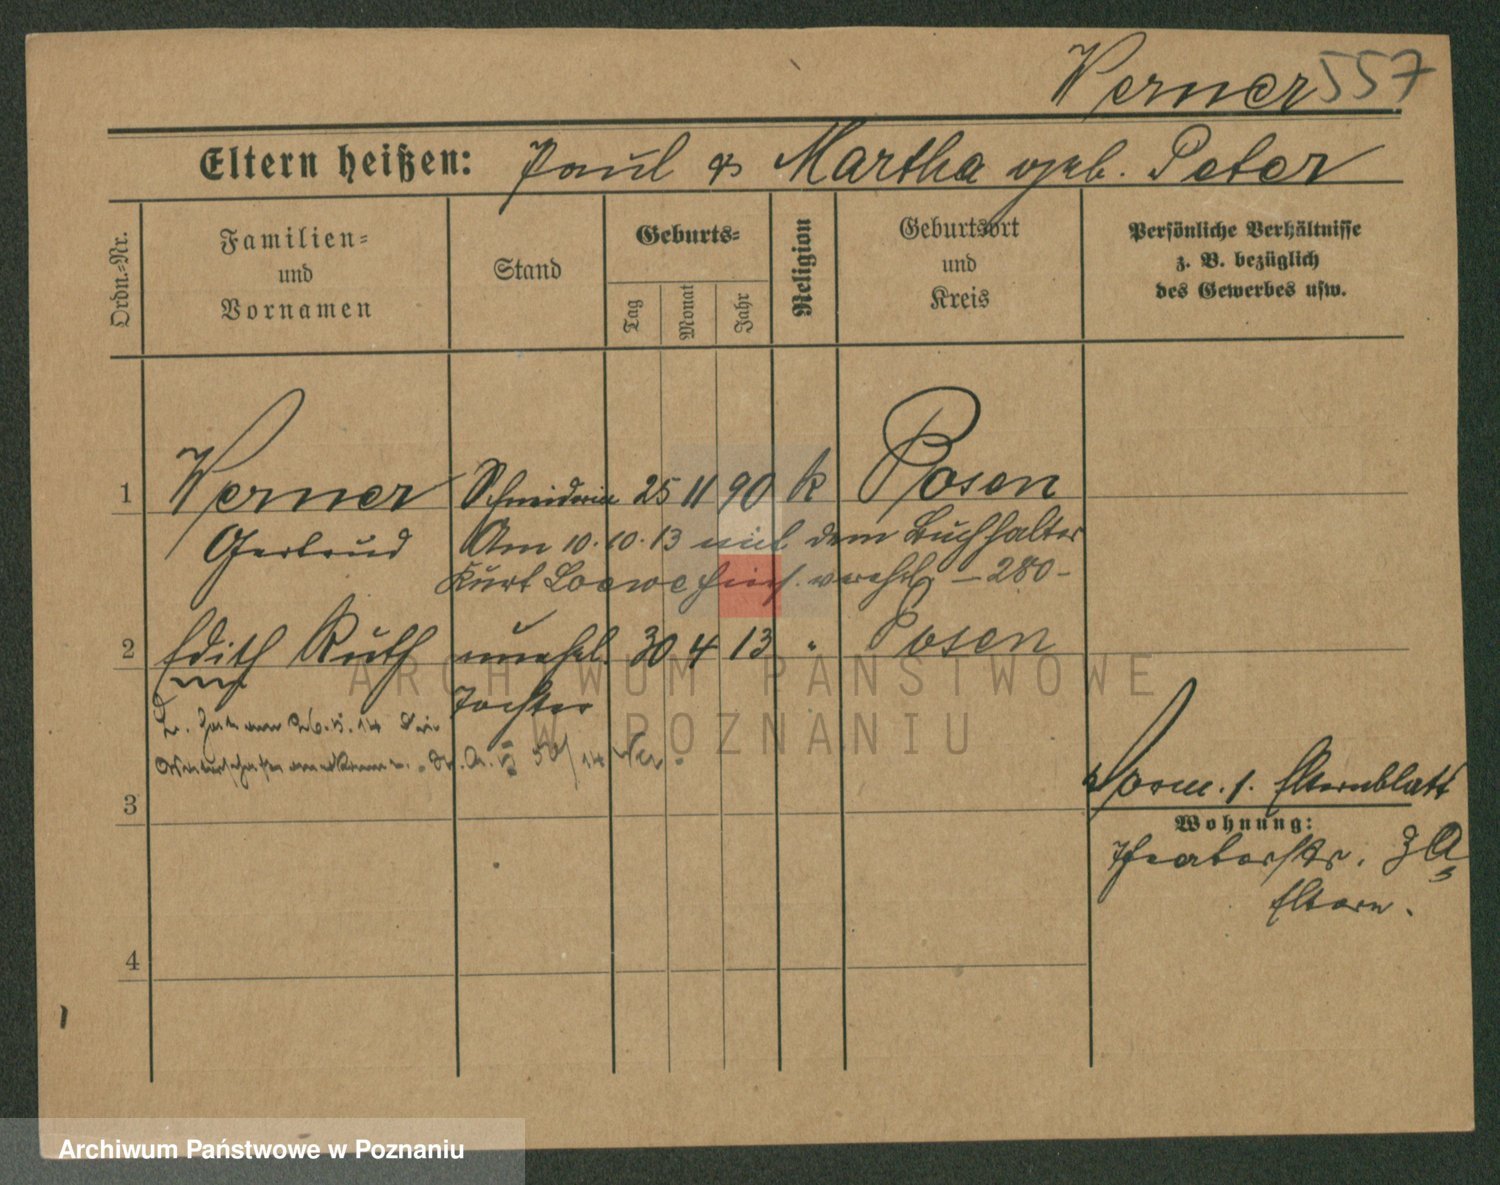 Werner 557
Eltern heißen: Paul & Martha geb. Peter
Ordn.-Nr.
Familien-
und
Vornamen
Stand
Geburts-
Tag
Monat
Jahr
Religion
Geburtsort
und
Kreis
Persönliche Verhältnisse
z. B. bezüglich
des Gewerbes usw.
1 Werner Schneiderin 25 11 90 k Posen
Gertrud Am 10.10.13 mit dem Buchhalter
Kurt Loewe hier verehel. – 280 –
2 Edith Ruth unehel. 30 4 13 " Posen
Tochter
L. hat am 26.5.14 die
50/14
ARCHIWUM PAŃSTWOWE
W POZNANIU
3
Vorm. s. Elternblatt
Wohnung:
Theaterstr. 3a
Eltern.
4
Archiwum Państwowe w Poznaniu